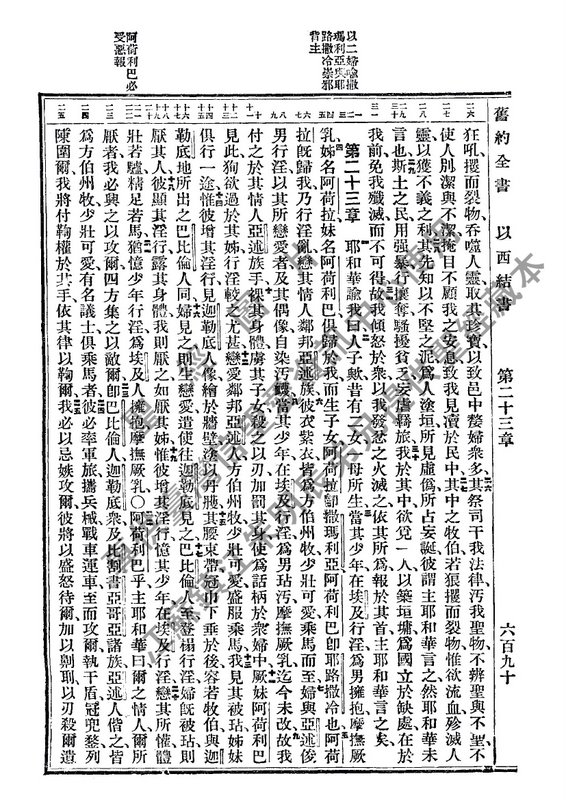 舊約全書 以西結書 第二十三章 六百九十
狂吼攫而裂物吞噬人靈取其珍寶以致邑中嫠婦衆多其祭司干我法律汚我聖物不辨聖與不聖不
使人別潔與不潔掩目不顧我之安息致我見瀆於民中其中之牧伯若狼攫而裂物惟欲流血殄滅人
靈以獲不義之利其先知以不堅之泥爲人塗垣所見虛僞所占妄誕彼謂主耶和華言之然耶和華未
言也斯土之民用强暴行攘奪騷擾貧乏妄虐羈旅我於其中欲覓一人以築垣墉爲國立於缺處在於
我前免我殲滅而不可得故我傾怒於衆以我忿之火滅之依其所爲報於其首主耶和華言之矣
第二十三章 耶和華諭我曰人子歟昔有二女一母所生當其少年在埃及行淫爲男擁抱摩撫厥
乳姊名阿荷拉妹名阿荷利巴俱歸於我而生子女阿荷拉卽撒瑪利亞阿荷利巴卽耶路撒冷也阿荷
拉旣歸我乃行淫亂戀其情人鄰邦亞述族彼衣紫衣皆爲方伯州牧少壯可愛乘馬而至婦與亞述俊
男行淫以其所戀愛者及其偶像自染汚衊當其少年在埃及行淫爲男玷汚摩撫厥乳迄今未改故我
付之於其情人亞述族手裸其身體虜其子女殺之以刃加罰其身使爲話柄於衆婦中厥妹阿荷利巴
見此狥欲過於其姊行淫較之尤甚戀愛鄰邦亞述人方伯州牧少壯可愛盛服乘馬我見其被玷姊妹
俱行一途惟彼增其淫行見迦勒底人像繪於牆壁塗以丹雘其腰束帶冠巾下垂於後容若牧伯與迦
勒底地所出之巴比倫人同婦見之則生戀愛遣使往迦勒底見之巴比倫人至登榻行淫婦旣被玷則
厭其人彼顯其淫行露其身體我則厭之如厭其姊惟彼增其淫行憶其少年在埃及行淫戀其所懽體
壯若驢精足若馬猶憶少年行淫爲埃及人擁抱摩撫厥乳○阿荷利巴乎主耶和華曰爾之情人爾所
厭者我必興之以攻爾四方集之以敵爾卽巴比倫人迦勒底衆及比割書亞哥亞諸族亞述人偕之皆
爲方伯州牧少壯可愛有名議士俱乘馬者彼必率軍旅攜兵械戰車運車至而攻爾執干盾冠兜鍪列
陳圍爾我將付鞫權於其手依其律以鞫爾我必以忌嫉攻爾彼將以盛怒待爾加以劓刵以刃殺爾遺
以二婦喩撒
瑪利亞與耶
路撒冷崇邪
背主
阿荷利巴必
受惡報